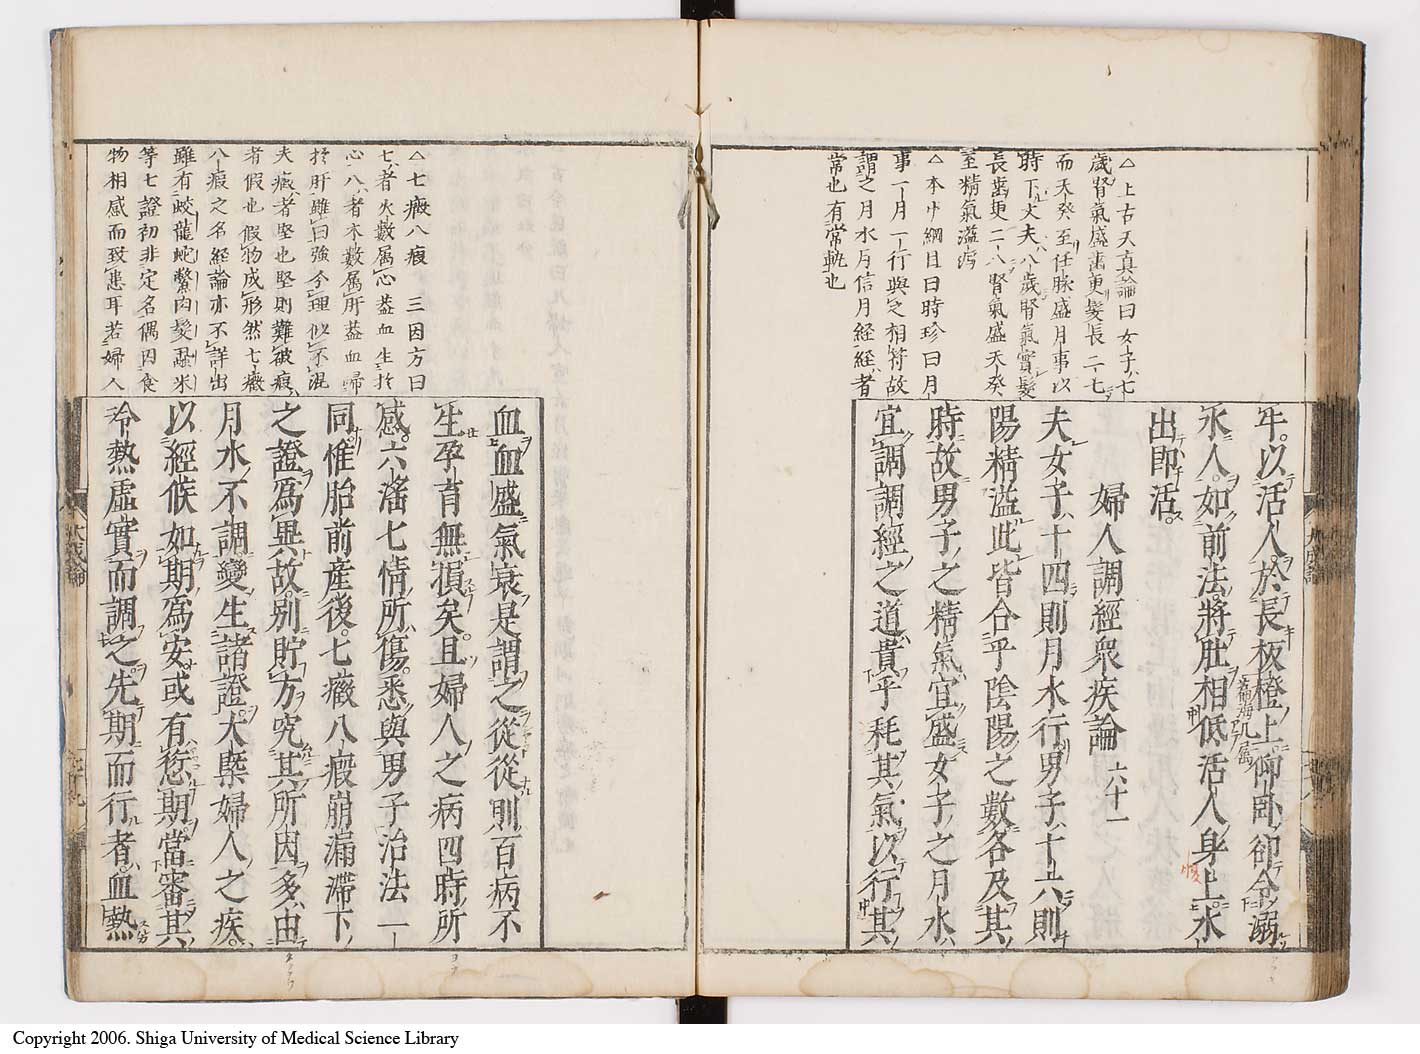 △上古天真論曰女子七
歲腎氣盛齒更髮長二七
而天癸至任脉盛月事以
時下丈夫八歲腎氣實髮
長齒更二八腎氣盛天癸
至精氣溢瀉
△本艸綱目曰時珍曰月
事一月一行與之相符故
謂之月水月信月經經者
常也有常軌也
牛以活人於長板橙上仰臥卻令溺
水人如前法將肚相低活人身上水
出即活
婦人調經衆疾論 六十一
夫女子十四則月水行男子十六則
陽精溢此皆合乎陰陽之數各及其
時故男子之精氣宜盛女子之月水
宜調調經之道貴乎耗其氣以行其
△七癥八瘕 三因方曰
七者火數属心蓋血生於
心八者木數属肝蓋血歸
於肝雖曰強合理似不混
夫癥者堅也堅則難破瘕
者假也假物成形然七癥
八瘕之名經論亦不詳出
雖有蛟龍蛇鱉肉髮蝨米
等七證初非定名偶因食
物相感而致患耳若婦人
血血盛氣衰是謂之從從則百病不
生孕育無損矣且婦人之病四時所
感六淫七情所傷悉與男子治法一
同惟胎前産後七癥八瘕崩漏滯下
之證爲異故別貯方究其所因多由
月水不調變生諸證大槩婦人之疾
以經候如期爲安或有愆期當審其
冷熱虛實而調之先期而行者血熱
大成論
Copyright 2006. Shiga University of Medical Science Library